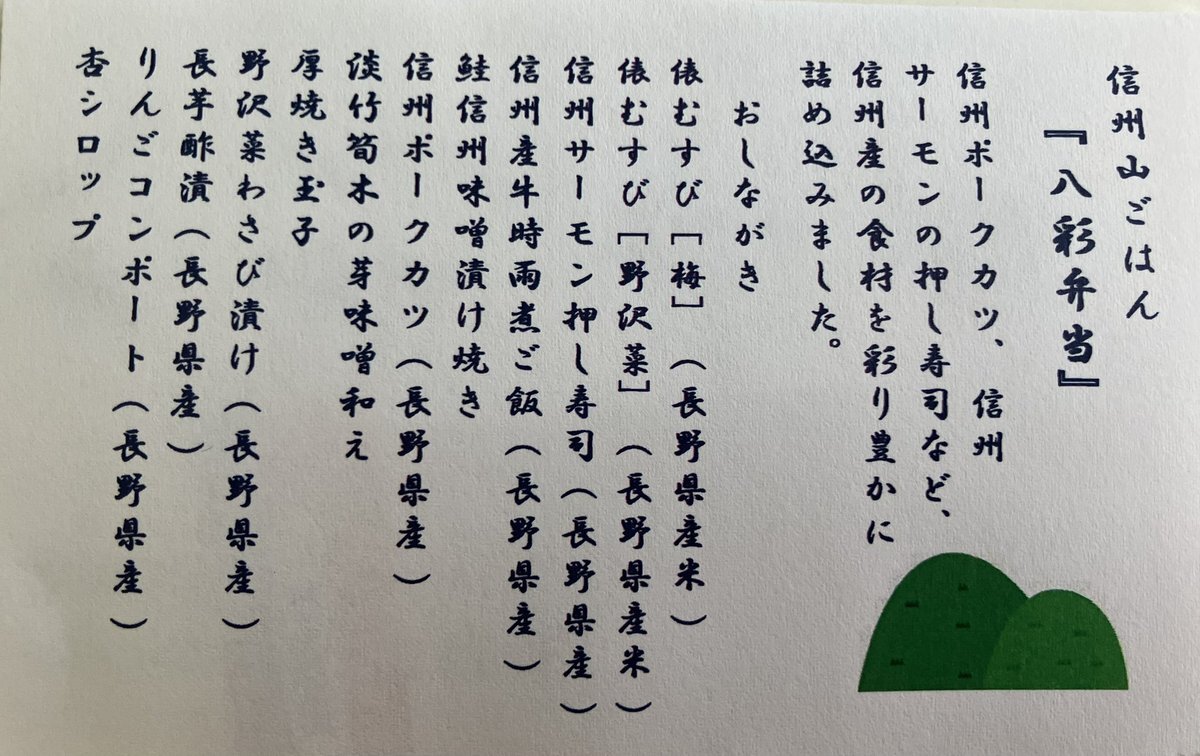 信州山ごはん
『八彩弁当』
信州ポークカツ、信州
サーモンの押し寿司など、
信州産の食材を彩り豊かに
詰め込みました。
おしながき
俵むすび［梅］（長野県産米）
俵むすび［野沢菜］（長野県産米）
信州サーモン押し寿司（長野県産）
信州産牛時雨煮ご飯（長野県産）
鮭信州味噌漬け焼き
信州ポークカツ（長野県産）
淡竹筍木の芽味噌和え
厚焼き玉子
野沢菜わさび漬け（長野県産）
長芋酢漬（長野県産）
りんごコンポート（長野県産）
杏シロップ